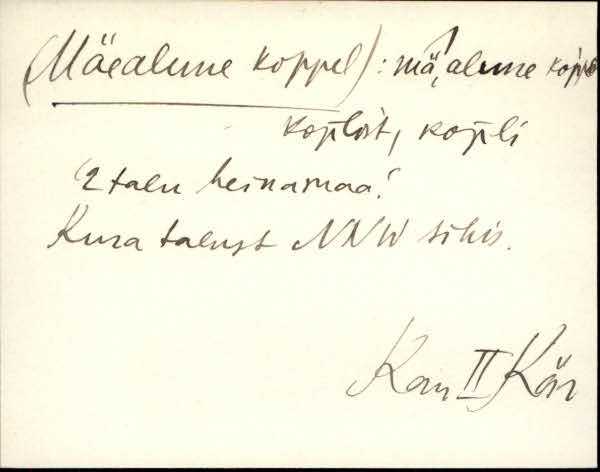 (Mäealune koppel): mä͕'alune kop̄pe
kop̄lit, kop̄li
'2 talu heinamaa'.
Kura talust NNW sihis.
Kam II Kär